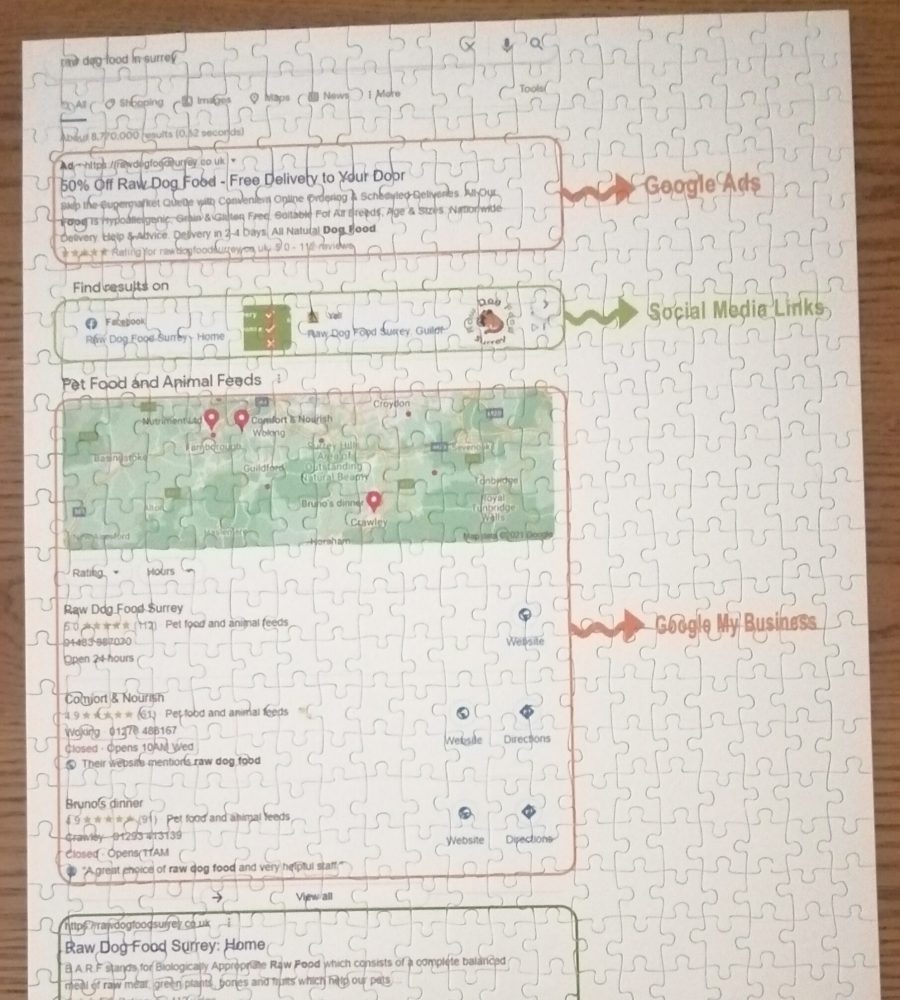 raw dog food in surrey
All Shopping Images Maps News More Tools
About 8,770,000 results (0.52 seconds)
Ad · https://rawdogfoodsurrey.co.uk
50% Off Raw Dog Food - Free Delivery to Your Door
Skip the Supermarket Queue with Convenient Online Ordering & Scheduled Deliveries. All Our
Food is Hypoallergenic, Grain & Gluten Free, Suitable For All Breeds, Age & Sizes. Nationwide
Delivery. Help & Advice. Delivery in 2-4 Days. All Natural Dog Food.
Rating for rawdogfoodsurrey.co.uk: 5.0 - 112 reviews
Google Ads
Find results on
Facebook
Raw Dog Food Surrey - Home
Yell
Raw Dog Food Surrey, Guildf
Raw Dog Food Surrey
Social Media Links
Pet Food and Animal Feeds
Croydon
Nutriment Ltd
Comfort & Nourish
Woking
Farnborough
Basingstoke
Surrey Hills
Area of
Outstanding
Natural Beauty
Sevenoaks
Guildford
Tonbridge
Royal
Tunbridge
Wells
Bruno's dinner
Crawley
Alton
Haslemere
Horsham
Map data ©2021 Google
Rating Hours
Raw Dog Food Surrey
5.0 ★★★★★ (112) Pet food and animal feeds
Open 24 hours
Website
Google My Business
Comfort & Nourish
4.9 ★★★★★ (61) Pet food and animal feeds
Woking
Closed · Opens 10AM Wed
Their website mentions raw dog food
Website Directions
Bruno's dinner
4.9 ★★★★★ (91) Pet food and animal feeds
Crawley · 01293 413139
Closed · Opens 11AM
"A great choice of raw dog food and very helpful staff."
Website Directions
→ View all
https://rawdogfoodsurrey.co.uk
Raw Dog Food Surrey: Home
B.A.R.F stands for Biologically Appropriate Raw Food which consists of a complete balanced
meal of raw meat, green plants, bones and fruits which help our pets